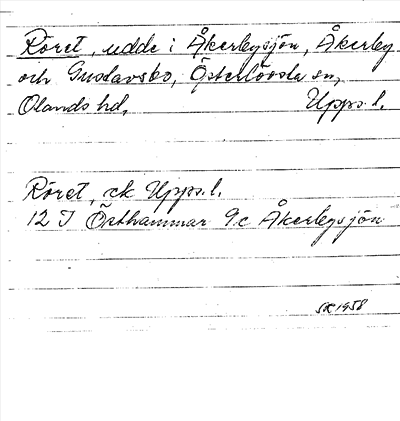 Röret, udde i Åkerbysjön, Åkerby
och Gustavsbo, Österlövsta sn,
Olands hd, Upps. l.
Röret, ek Upps. l.
12 I Östhammar 9c Åkerbysjön
SK 1958